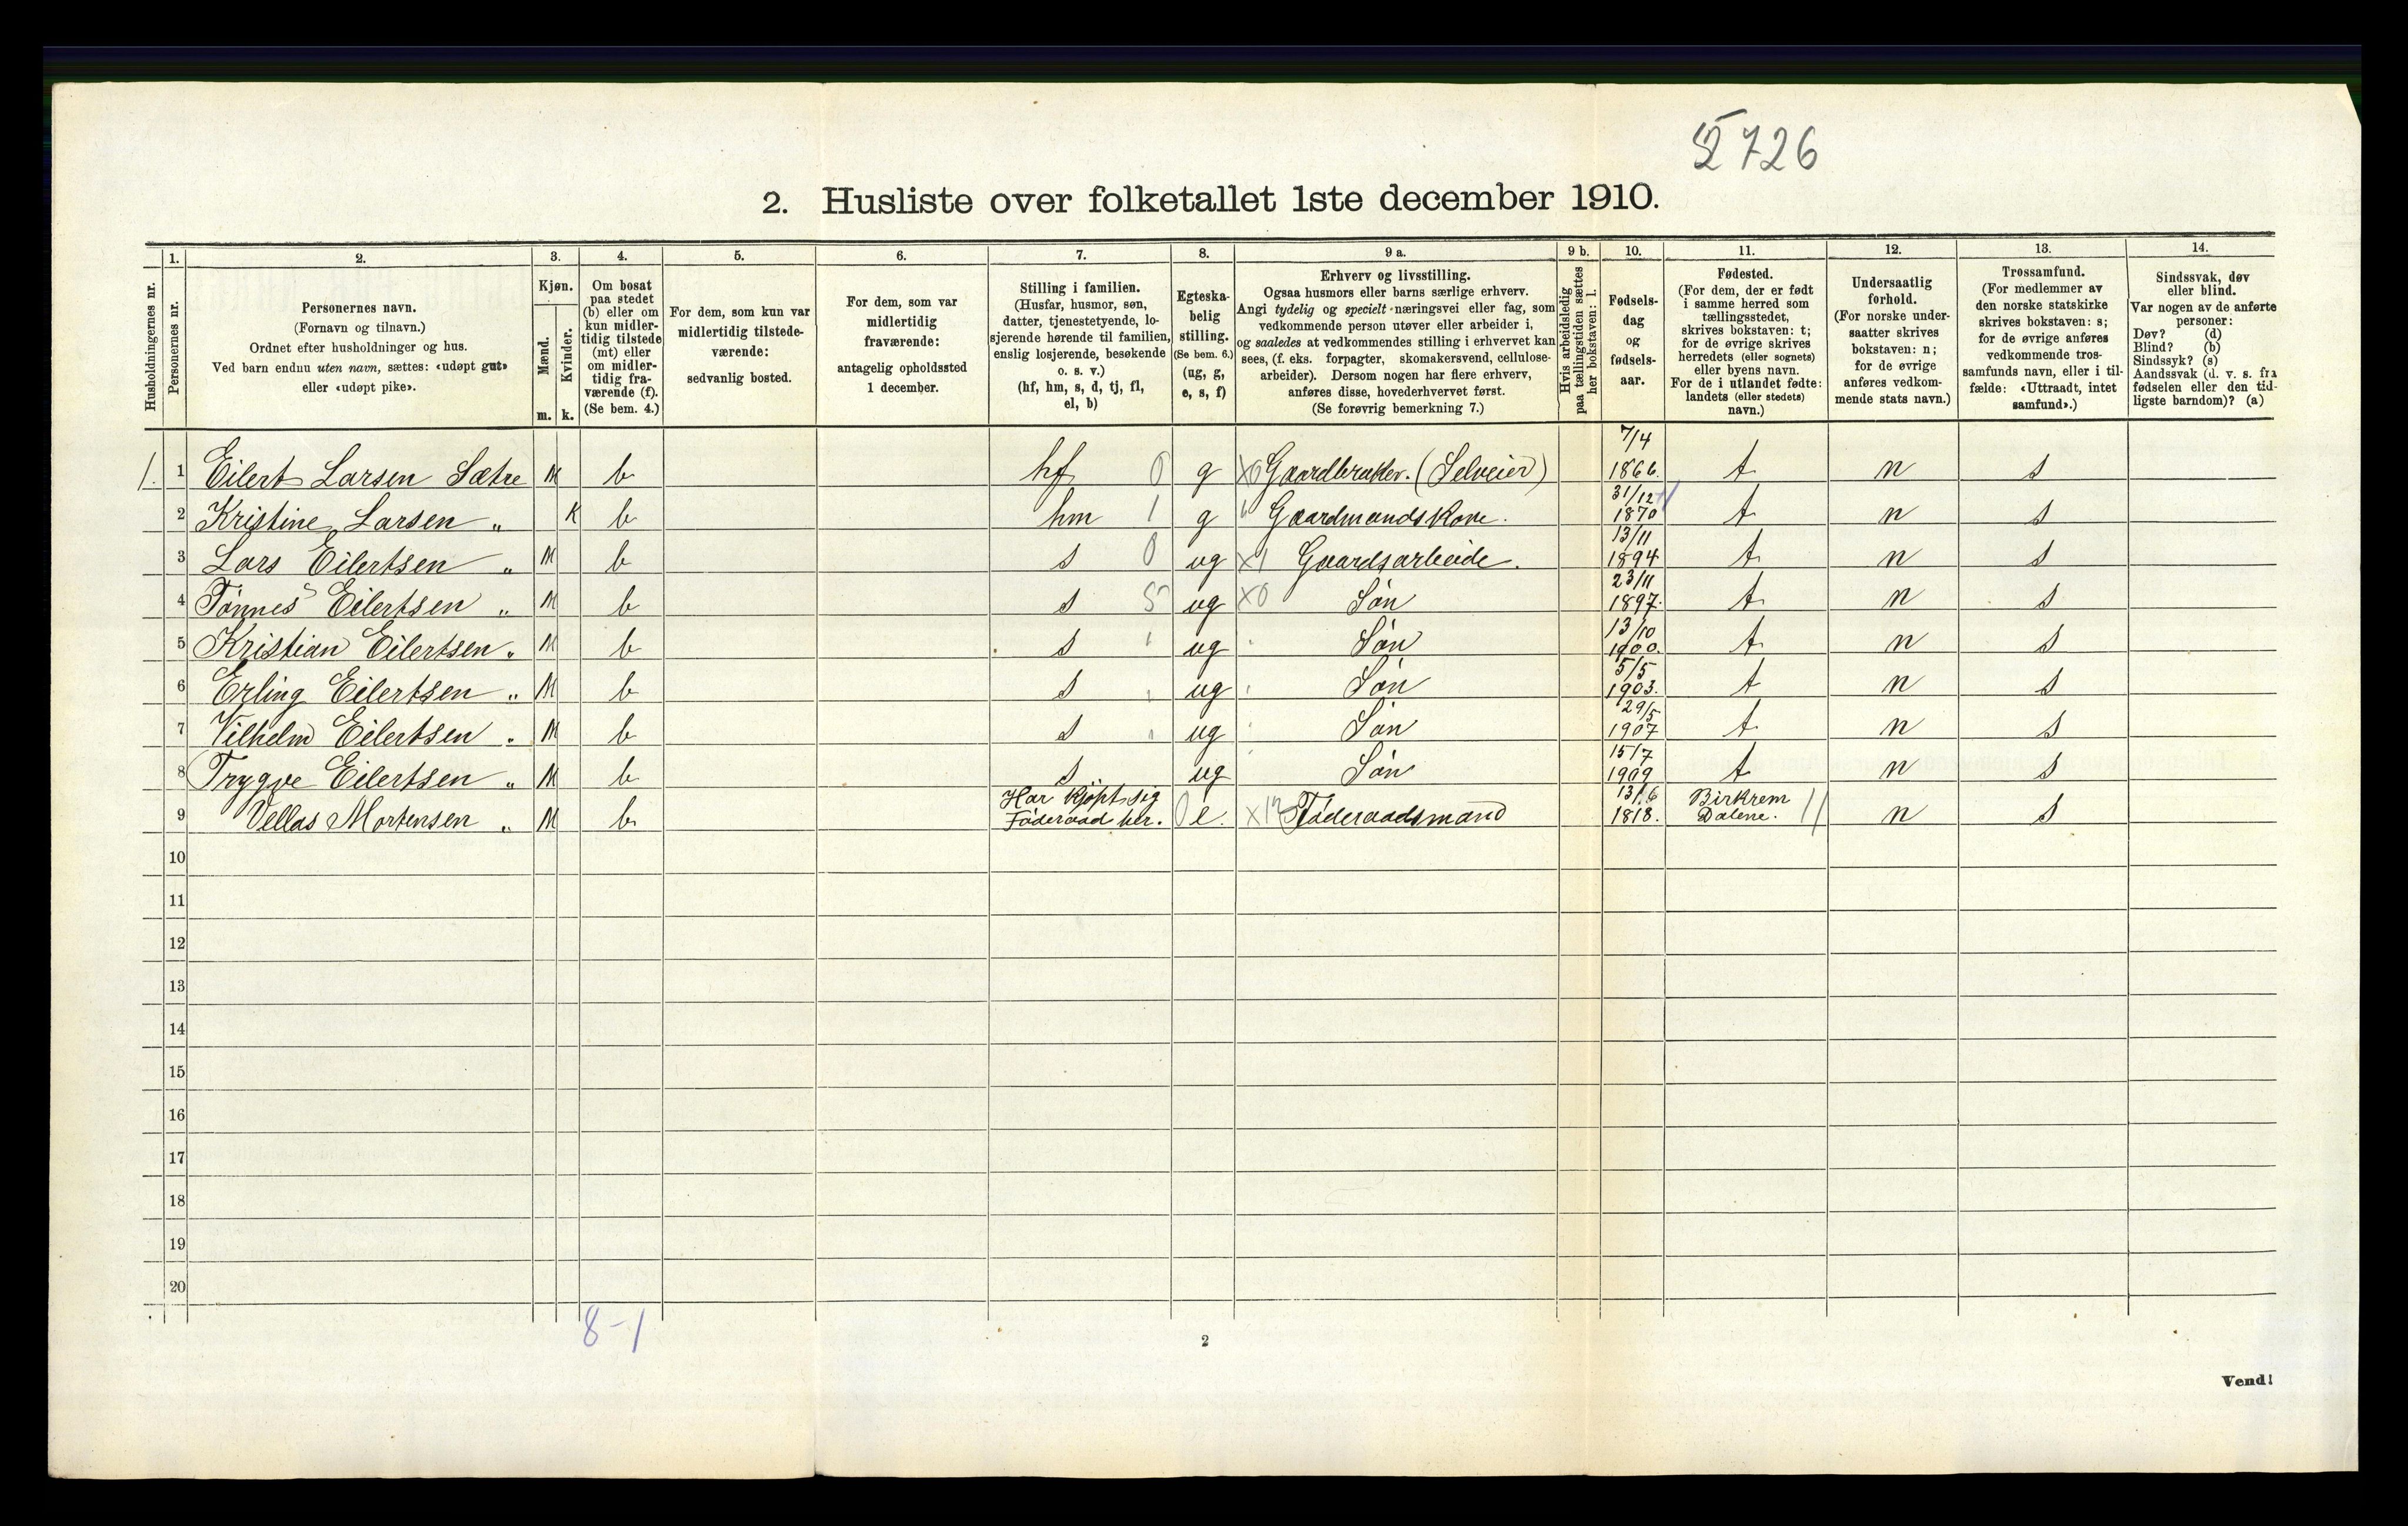 52726
2. Husliste over folketallet 1ste december 1910.
Husholdningernes nr.
1.
Personernes nr.
2.
Personernes navn.
(Fornavn og tilnavn.)
Ordnet efter husholdninger og hus.
Ved barn endnu uten navn, sættes: «udøpt gut»
eller «udøpt pike».
3.
Kjøn.
Mænd.
Kvinder.
m. k.
4.
Om bosat
paa stedet
(b) eller om
kun midler-
tidig tilstede
(mt) eller
om midler-
tidig fra-
værende (f).
(Se bem. 4.)
5.
For dem, som kun var
midlertidig tilstede-
værende:
sedvanlig bosted.
6.
For dem, som var
midlertidig
fraværende:
antagelig opholdssted
1 december.
7.
Stilling i familien.
(Husfar, husmor, søn,
datter, tjenestetyende, lo-
sjerende hørende til familien,
enslig losjerende, besøkende
o. s. v.)
(hf, hm, s, d, tj, fl,
el, b)
8.
Egteska-
belig
stilling.
(Se bem. 6.)
(ug, g,
e, s, f)
9 a.
Erhverv og livsstilling.
Ogsaa husmors eller barns særlige erhverv.
Angi tydelig og specielt næringsvei eller fag, som
vedkommende person utøver eller arbeider i,
og saaledes at vedkommendes stilling i erhvervet kan
sees, (f. eks. forpagter, skomakersvend, cellulose-
arbeider). Dersom nogen har flere erhverv,
anføres disse, hovederhvervet først.
(Se forøvrig bemerkning 7.)
9 b.
Hvis arbeidsledig
paa tællingstiden sættes
her bokstaven: l.
10.
Fødsels-
dag
og
fødsels-
aar.
11.
Fødested.
(For dem, der er født
i samme herred som
tællingsstedet,
skrives bokstaven: t;
for de øvrige skrives
herredets (eller sognets)
eller byens navn.
For de i utlandet fødte:
landets (eller stedets)
navn.)
12.
Undersaatlig
forhold.
(For norske under-
saatter skrives
bokstaven: n;
for de øvrige
anføres vedkom-
mende stats navn.)
13.
Trossamfund.
(For medlemmer av
den norske statskirke
skrives bokstaven: s;
for de øvrige anføres
vedkommende tros-
samfunds navn, eller i til-
fælde: «Uttraadt, intet
samfund».)
14.
Sindssvak, døv
eller blind.
Var nogen av de anførte
personer:
Døv? (d)
Blind? (b)
Sindssyk? (s)
Aandssvak (d. v. s. fra
fødselen eller den tid-
ligste barndom)? (a)
1. 1 Eilert Larsen Sætre M b hf 0 g X0 Gaardbruker. (Selveier) 7/4 1866. t n s
2 Kristine Larsen „ K b hm 1 g Gaardmandskone. 31/12 1870 t n s
3 Lars Eilertsen „ M b s 0 ug X1 Gaardsarbeide. 13/11 1894 t n s
4 Tønnes Eilertsen „ M b s 5 ug X0 Søn 23/11 1897. t n s
5 Kristian Eilertsen „ M b s ug Søn 13/10 1900. t n s
6 Erling Eilertsen „ M b s ug Søn 5/5 1903. t n s
7 Vilhelm Eilertsen „ M b s ug Søn 29/5 1907 t n s
8 Trygve Eilertsen „ M b s ug Søn 15/7 1909 t n s
9 Vellas Mortensen „ M b Har kjøpt sig Føderaad her. 0 e. X12 Føderaadsmand 13/6 1818. Birkrem Dalene. 11 n s
10
11
12
13
14
15
16
17
18
19
20
8-1
2
Vend!